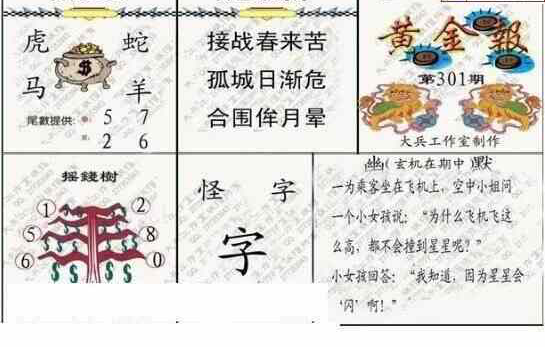 虎 蛇
马 羊
尾數提供: 5 7
2 6
接战春来苦
孤城日渐危
合围侔月晕
黄金報
第301期
大兵工作室制作
摇錢樹
1 2
5 8
6 0
怪 字
字
幽(玄机在期中)默
一为乘客坐在飞机上, 空中小姐问
一个小女孩说: “为什么飞机飞这
么高, 都不会撞到星星呢?”
小女孩回答: “我知道, 因为星星会
‘闪’啊!”